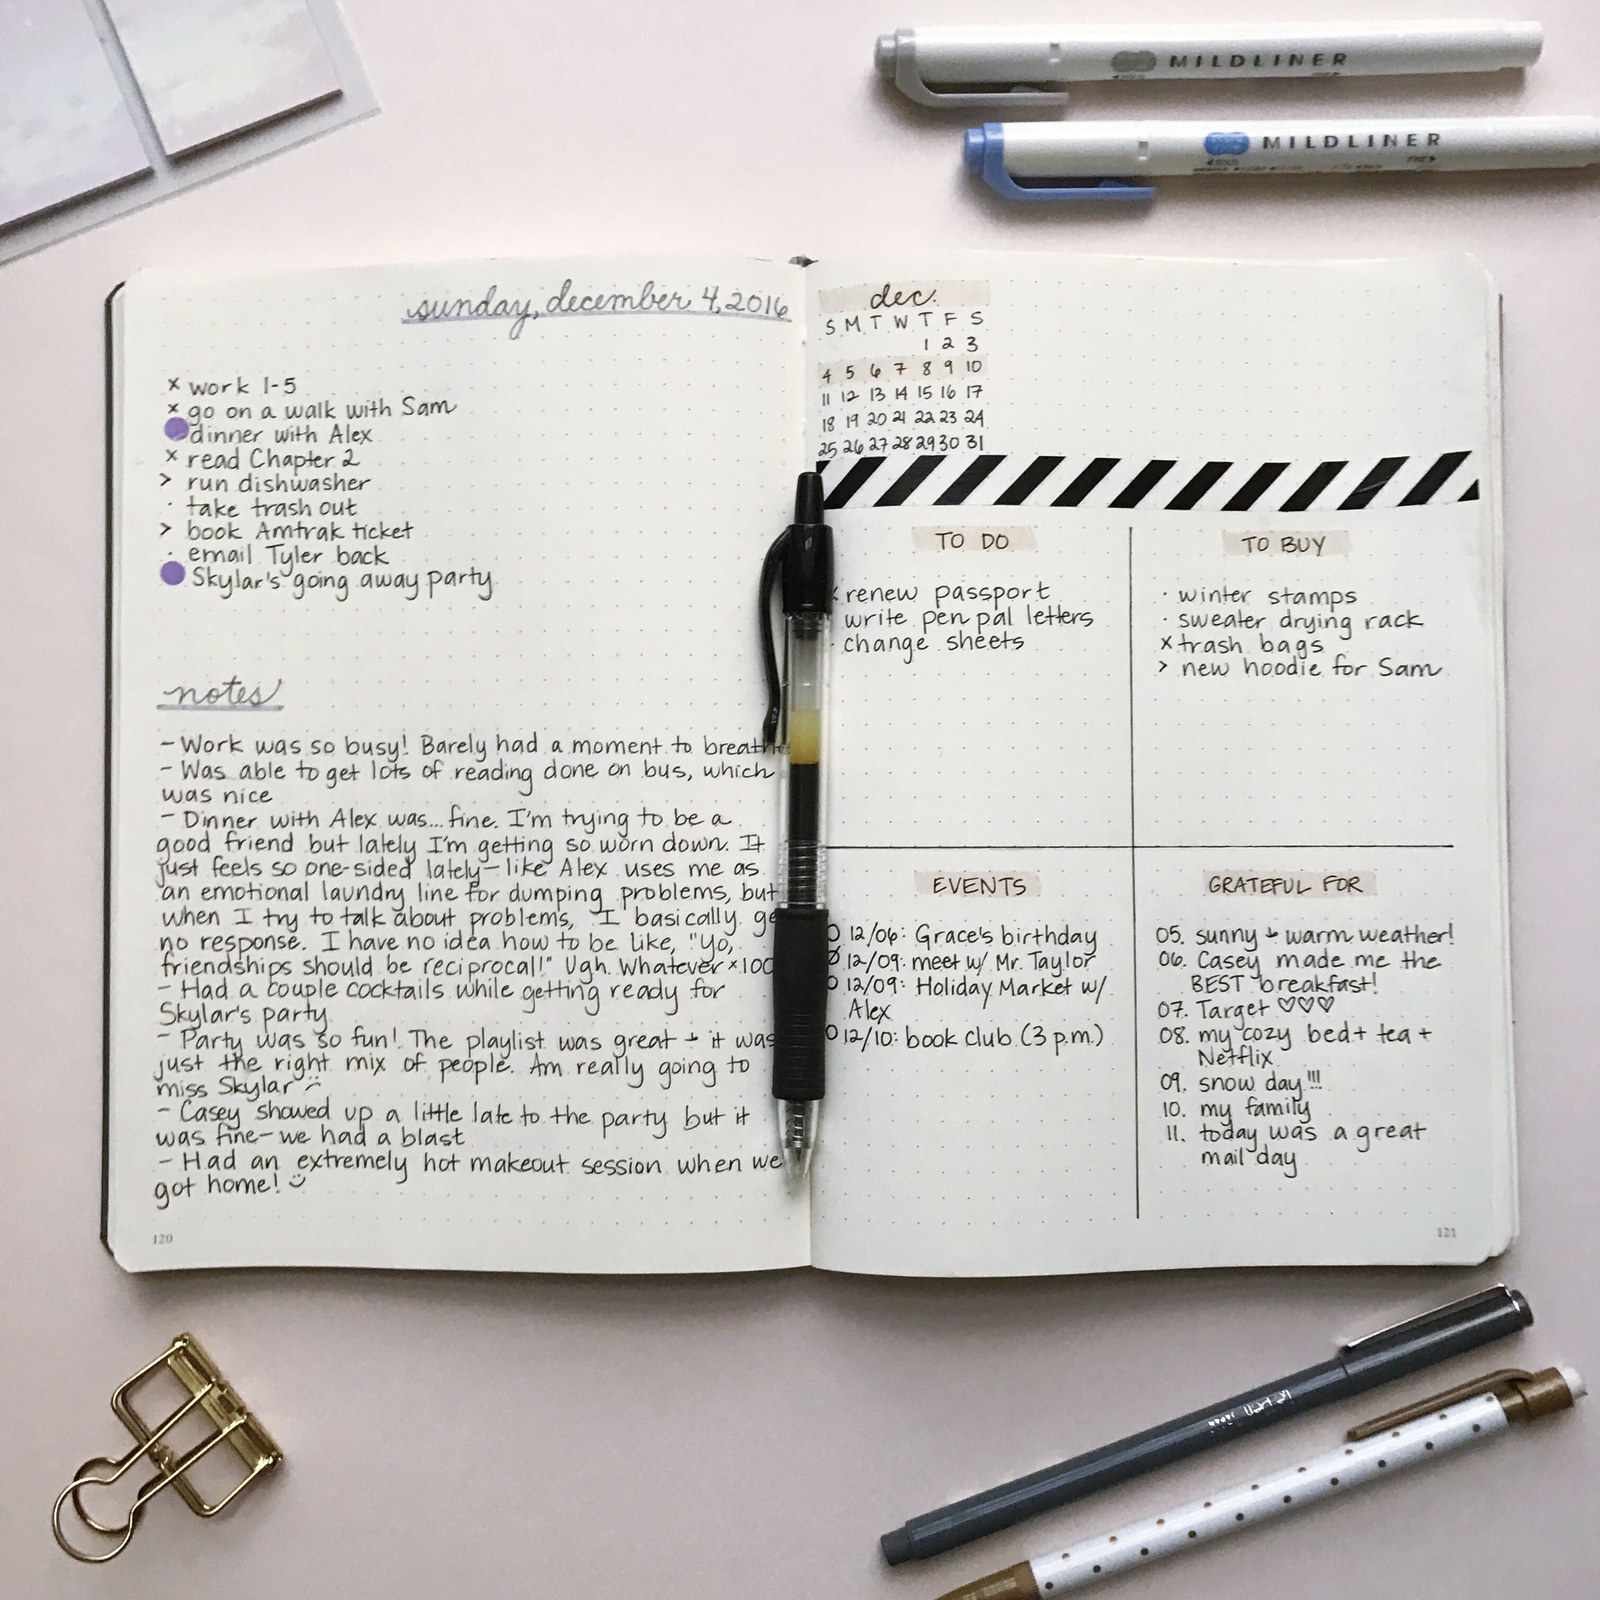 MILDLINER
MILDLINER
sunday, december 4, 2016
x work 1-5
x go on a walk with Sam
dinner with Alex
x read Chapter 2
> run dishwasher
· take trash out
> book Amtrak ticket
· email Tyler back
Skylar's going away party
notes
- Work was so busy! Barely had a moment to breathe
- Was able to get lots of reading done on bus, which
was nice
- Dinner with Alex was... fine. I'm trying to be a
good friend but lately I'm getting so worn down. It
just feels so one-sided lately - like Alex uses me as
an emotional laundry line for dumping problems, but
when I try to talk about problems, I basically ge
no response. I have no idea how to be like, "Yo,
friendships should be reciprocal!" Ugh. Whatever x100
- Had a couple cocktails while getting ready for
Skylar's party
- Party was so fun! The playlist was great + it was
just the right mix of people. Am really going to
miss Skylar :(
- Casey showed up a little late to the party but it
was fine - we had a blast
- Had an extremely hot makeout session when we
got home! :)
120
dec.
S M T W T F S
1 2 3
4 5 6 7 8 9 10
11 12 13 14 15 16 17
18 19 20 21 22 23 24
25 26 27 28 29 30 31
TO DO
x renew passport
write pen pal letters
· change sheets
TO BUY
· winter stamps
· sweater drying rack
x trash bags
> new hoodie for Sam
EVENTS
O 12/06: Grace's birthday
Ø 12/09: meet w/ Mr. Taylor
O 12/09: Holiday Market w/
Alex
O 12/10: book club (3 p.m.)
GRATEFUL FOR
05. sunny + warm weather!
06. Casey made me the
BEST breakfast!
07. Target ♡♡♡
08. my cozy bed + tea +
Netflix
09. snow day!!!
10. my family
11. today was a great
mail day
121